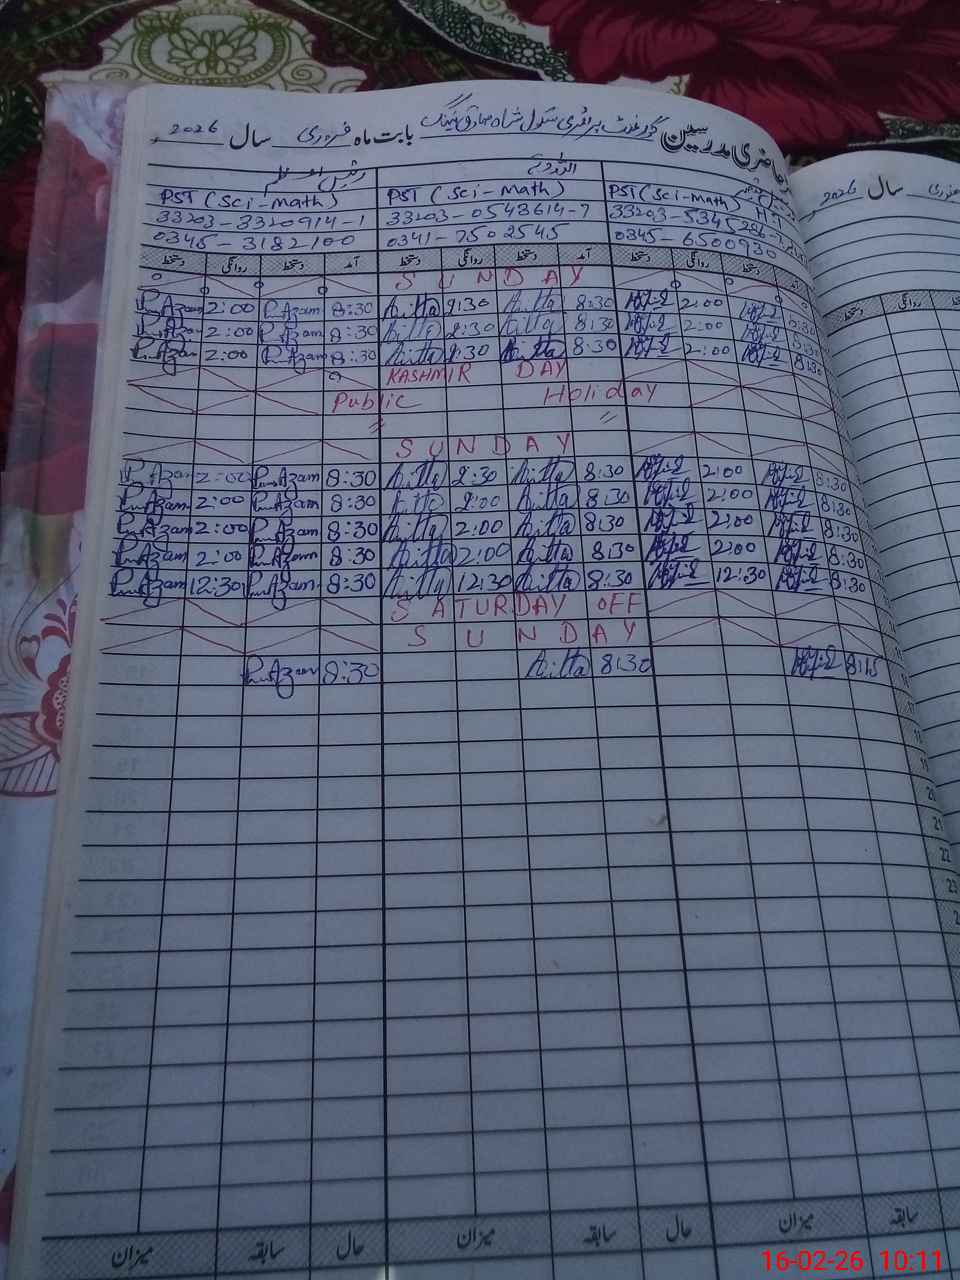 حاضری مدرسین گورنمنٹ پرائمری سکول شاہ صادق نہنگ بابت ماہ فروری سال 2026
سال 2026
PST (Sci-Math) PST (Sci-Math) PST (Sci-Math)
33203-3320914-1 33203-0543614-7 33203-5345
0345-3182100 0341-7502545 0345-6500930
دستخط روانگی دستخط آمد دستخط روانگی دستخط آمد دستخط روانگی دستخط آمد
SUNDAY
R.Azam 2:00 R.Azam 8:30 Aitta 2:30 Aitta 8:30 2:00 8:30
R.Azam 2:00 R.Azam 8:30 Aitta 2:30 Aitta 8:30 2:00 8:30
R.Azam 2:00 R.Azam 8:30 Aitta 2:30 Aitta 8:30 2:00 8:30
KASHMIR DAY
Public Holiday
〃 〃
SUNDAY
R.Azam 2:00 R.Azam 8:30 Aitta 2:30 Aitta 8:30 2:00 8:30
R.Azam 2:00 R.Azam 8:30 Aitta 2:00 Aitta 8:30 2:00 8:30
R.Azam 2:00 R.Azam 8:30 Aitta 2:00 Aitta 8:30 2:00 8:30
R.Azam 2:00 R.Azam 8:30 Aitta 2:00 Aitta 8:30 2:00 8:30
R.Azam 12:30 R.Azam 8:30 Aitta 12:30 Aitta 8:30 12:30 8:30
SATURDAY OFF
SUNDAY
R.Azam 8:30 Aitta 8:30 8:15
17
18
19
20
21
22
23
میزان سابقہ حال میزان سابقہ حال میزان سابقہ
16-02-26 10:11